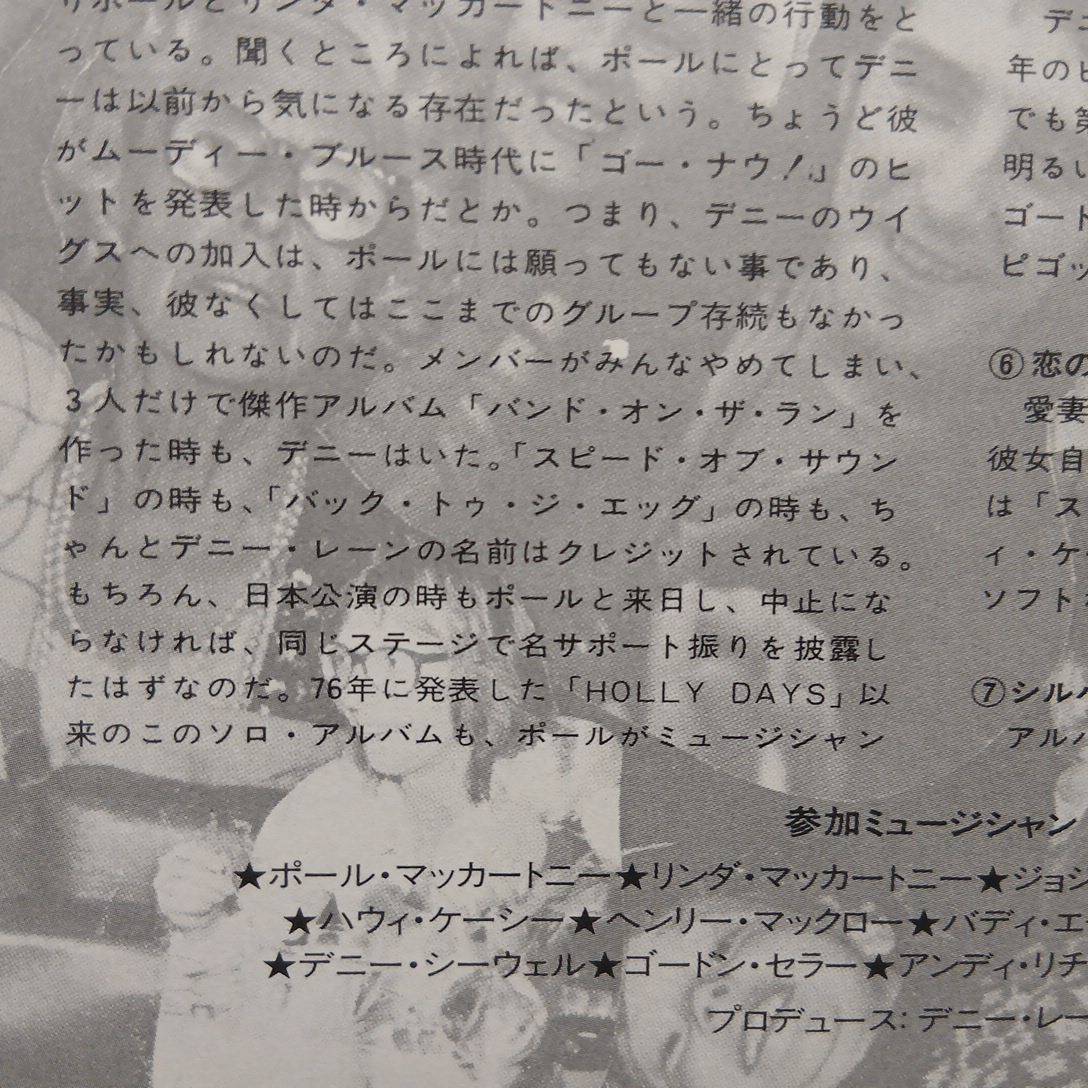 りポールとリンダ・マッカートニーと一緒の行動をと
っている。聞くところによれば、ポールにとってデニ
ーは以前から気になる存在だったという。ちょうど彼
がムーディー・ブルース時代に「ゴー・ナウ!」のヒ
ットを発表した時からだとか。つまり、デニーのウイ
グスへの加入は、ポールには願ってもない事であり、
事実、彼なくしてはここまでのグループ存続もなかっ
たかもしれないのだ。メンバーがみんなやめてしまい、
3人だけで傑作アルバム「バンド・オン・ザ・ラン」を
作った時も、デニーはいた。「スピード・オブ・サウン
ド」の時も、「バック・トゥ・ジ・エッグ」の時も、ち
ゃんとデニー・レーンの名前はクレジットされている。
もちろん、日本公演の時もポールと来日し、中止にな
らなければ、同じステージで名サポート振りを披露し
たはずなのだ。76年に発表した「HOLLY DAYS」以
来のこのソロ・アルバムも、ポールがミュージシャン
デニ
年のヒ
でも第
明るい
ゴード
ピゴッ
⑥恋の
愛妻
彼女自
は「ス
ィ・ケ
ソフト
⑦シルバ
アルバ
参加ミュージシャン
★ポール・マッカートニー★リンダ・マッカートニー★ジョシ
★ハウィ・ケーシー★ヘンリー・マックロー★バディ・エ
★デニー・シーウェル★ゴードン・セラー★アンディ・リチ
プロデュース:デニー・レー